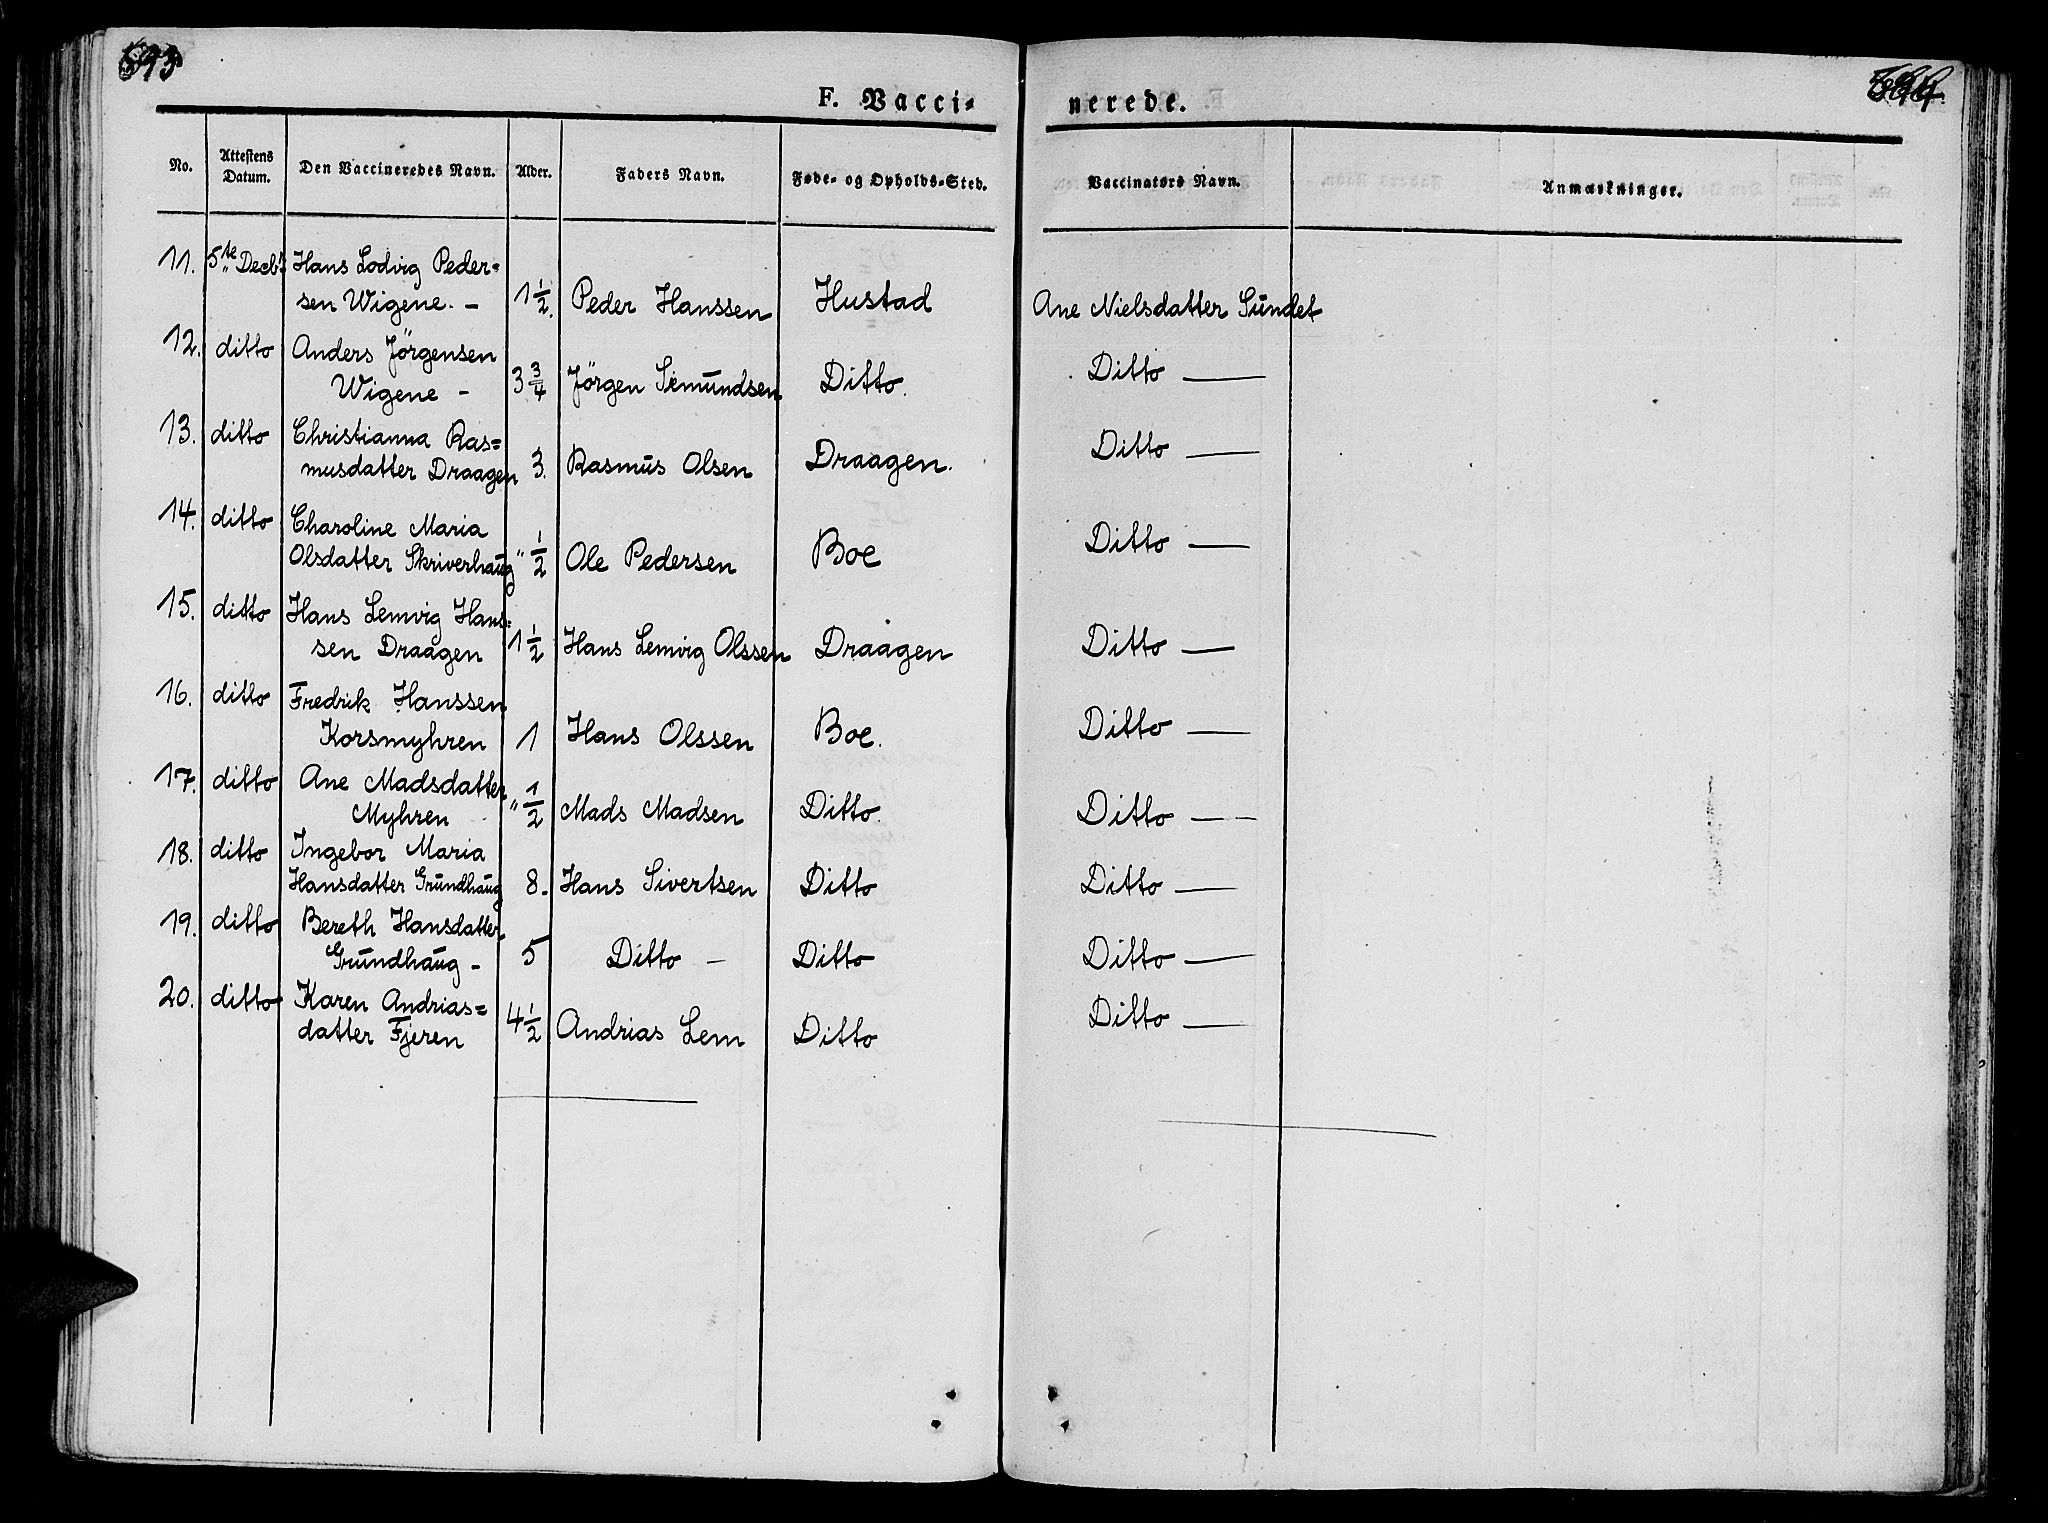 593
F. Vacci-
nerede.
No.
Attestens Datum.
Den Vaccineredes Navn.
Alder.
Faders Navn.
Føde- og Opholds-Sted.
Vaccinatørs Navn.
Anmærkninger.
11. 5te Decbr Hans Lodvig Peder=
sen Wigene. – 1 1/2. Peder Hanssen Hustad Ane Nielsdatter Sundet
12. ditto Anders Jörgensen
Wigene – 3 3/4 Jörgen Semundsen Ditto. Ditto —
13. ditto Christianna Ras=
musdatter Draagen 3. Rasmus Olsen Draagen. Ditto —
14. ditto Charoline Maria
Olsdatter Skriverhaug " 1/2 Ole Pedersen Boe Ditto —
15. ditto Hans Lemvig Hans=
sen Draagen 1 1/2 Hans Lemvig Olssen Draagen Ditto —
16. ditto Fredrik Hanssen
Korsmyhren 1 Hans Olssen Boe. Ditto —
17. ditto Ane Madsdatter
Myhren " 1/2 Mads Madsen Ditto. Ditto —
18. ditto Ingebor Maria
Hansdatter Grundhaug 8. Hans Sivertsen Ditto Ditto —
19. ditto Bereth Hansdatter
Grundhaug – 5 Ditto – Ditto Ditto —
20. ditto Karen Andrias=
datter Fjeren 4 1/2 Andrias Lem Ditto Ditto —